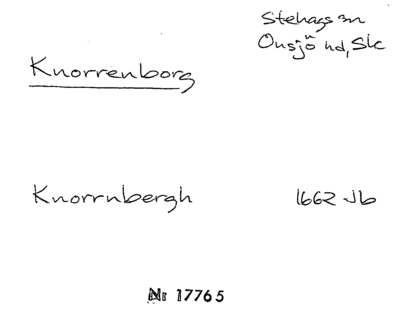 Stehags sn
Onsjö hd, Sk
Knorrenborg
Knorrnbergh 1662 Jb
Nr 17765